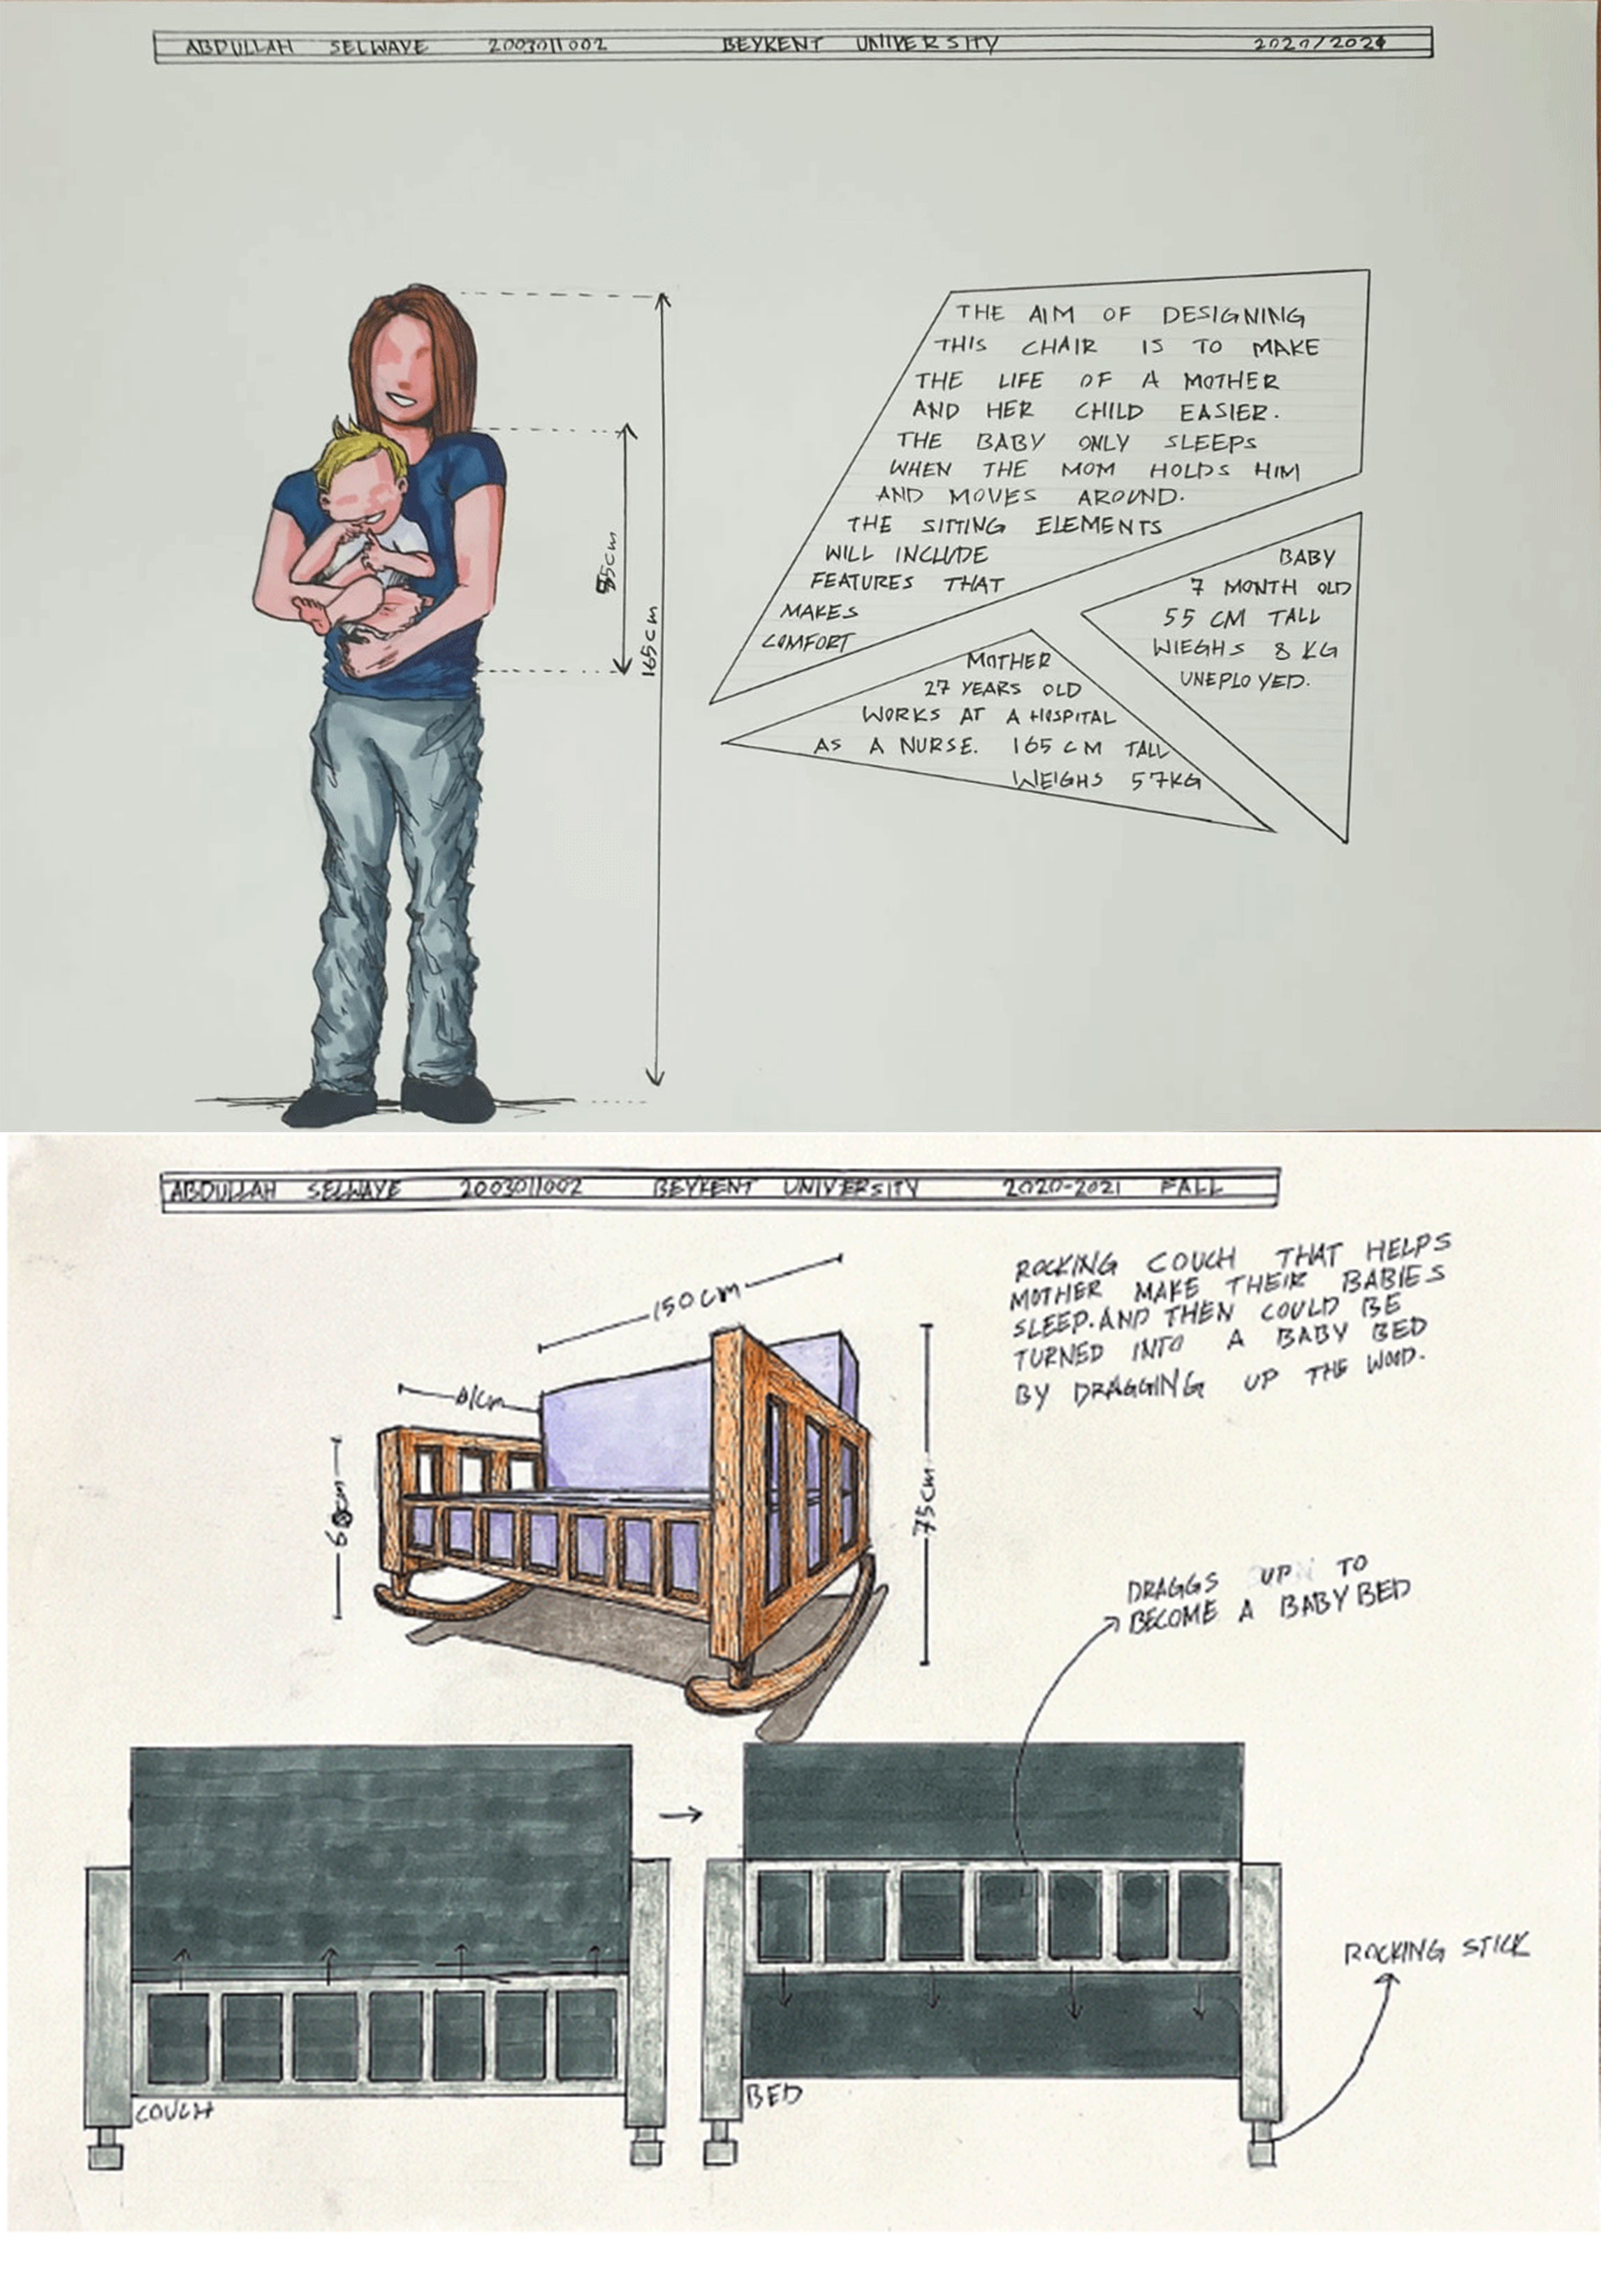 ABDULLAH SELWAYE 2003011002 BEYKENT UNIVERSITY 2020/2021
THE AIM OF DESIGNING
THIS CHAIR IS TO MAKE
THE LIFE OF A MOTHER
AND HER CHILD EASIER.
THE BABY ONLY SLEEPS
WHEN THE MOM HOLDS HIM
AND MOVES AROUND.
THE SITTING ELEMENTS
WILL INCLUDE
FEATURES THAT
MAKES
COMFORT
BABY
7 MONTH OLD
55 CM TALL
WIEGHS 8 KG
UNEPLOYED.
MOTHER
27 YEARS OLD
WORKS AT A HOSPITAL
AS A NURSE. 165 CM TALL
WEIGHS 57KG
55cm
165cm
ABDULLAH SELWAYE 2003011002 BEYKENT UNIVERSITY 2020-2021 FALL
ROCKING COUCH THAT HELPS
MOTHER MAKE THEIR BABIES
SLEEP. AND THEN COULD BE
TURNED INTO A BABY BED
BY DRAGGING UP THE WOOD.
150cm
75cm
DRAGGS UP TO
BECOME A BABY BED
ROCKING STICK
COUCH
BED